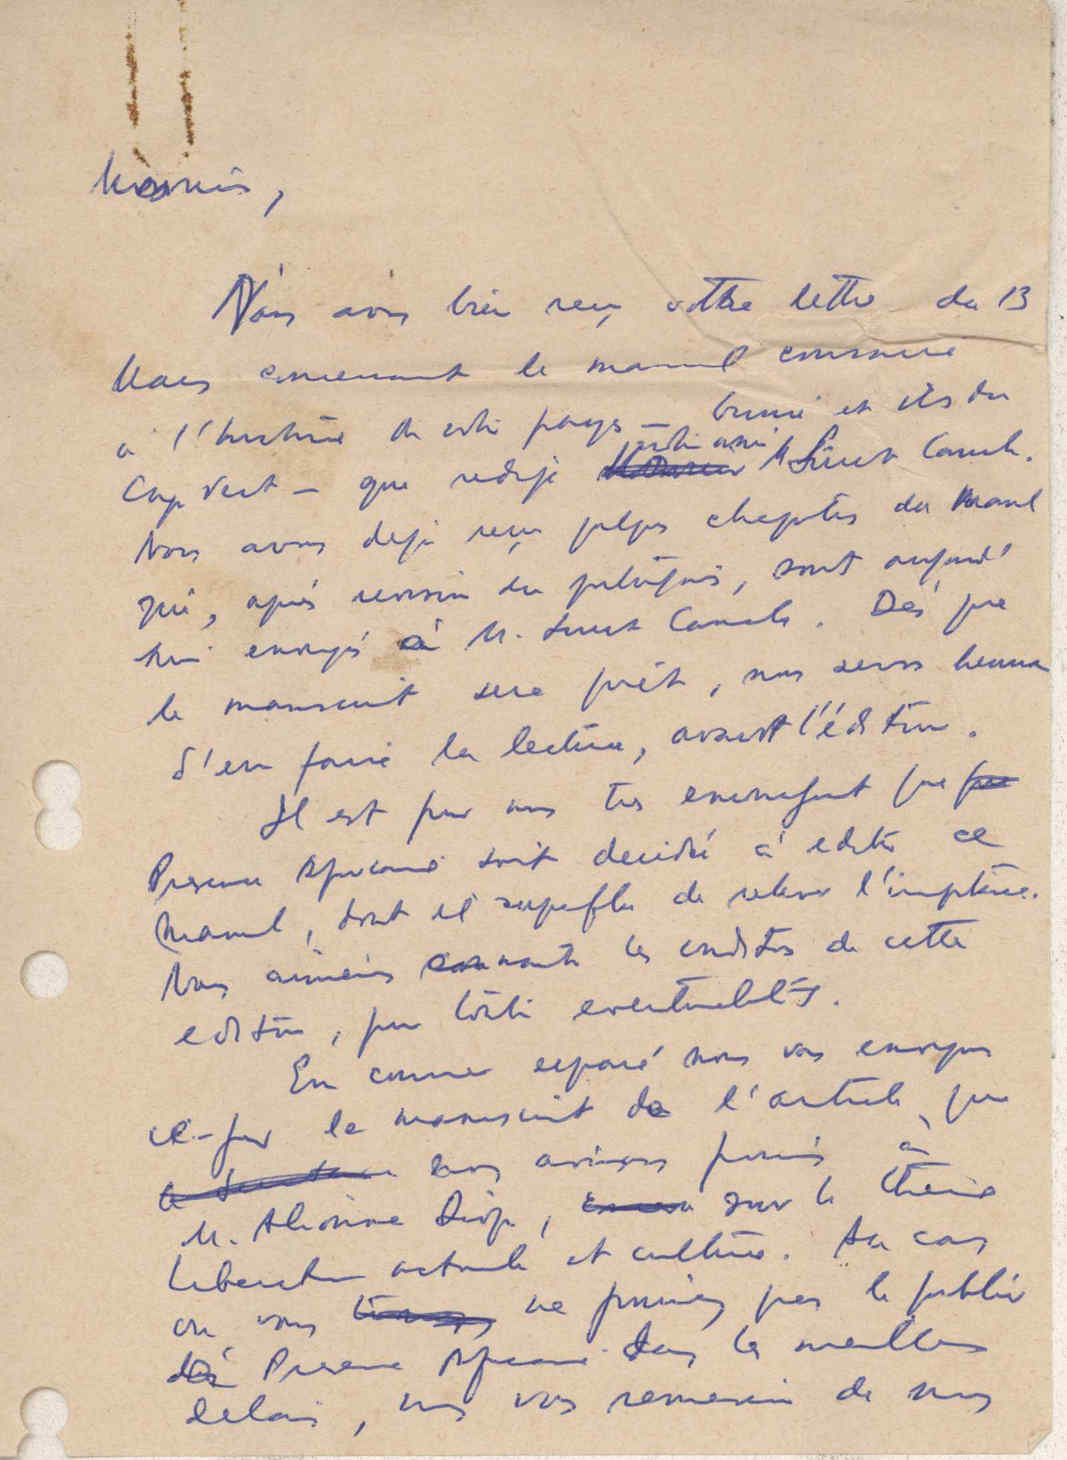 Monsieur,
Nous avons bien reçu votre lettre du 13
Mars concernant le manuel
à l'histoire de votre pays - Guinée et îles du
Cap Vert - que rédige votre ami M. Suret Canale.
Nous avons déjà reçu quelques chapitres du Manuel
qui, après revision du, sont aujourd'
hui envoyés à M. Suret Canale. Dès que
le manuscrit sera prêt, nous serons heureux
d'en faire la lecture, avant l'édition.
Il est pour nous très encourageant que
Presence Africaine soit décidée à editer ce
Manuel, dont il superflu de relever l'importance.
Nous aimerions connaitre les conditions de cette
edition, pour toute eventualité.
En courrier separé nous vous envoyons
le manuscrit de l'article que
nous avions promis à
M. Alioune Diop, sur le thème
Liberation nationale et culture. Au cas
où vous ne pourriez pas le publier
dans Presence Africaine dans les meilleurs
delais, nous vous de nous